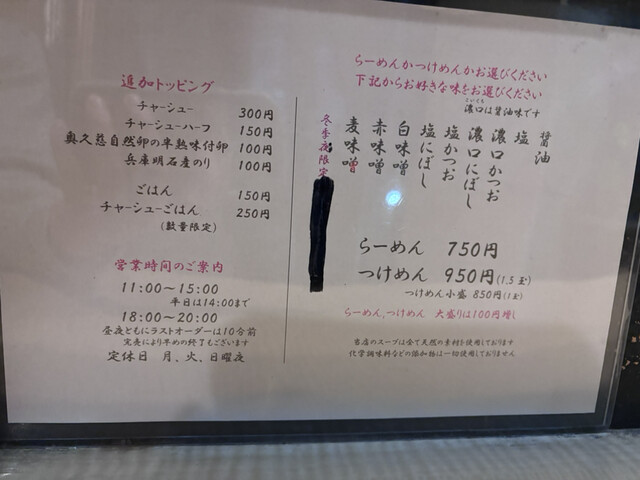 追加トッピング
チャーシュー 300円
チャーシューハーフ 150円
奥久慈自然卵の半熟味付卵 100円
兵庫明石産のり 100円
ごはん 150円
チャーシューごはん 250円
(数量限定)
営業時間のご案内
11:00〜15:00
平日は14:00まで
18:00〜20:00
昼夜ともにラストオーダーは10分前
完売により早めの終了もございます
定休日 月、火、日曜夜
らーめんかつけめんかお選びください
下記からお好きな味をお選びください
こいくち
濃口は醤油味です
醤油
塩
濃口かつお
濃口にぼし
塩かつお
塩にぼし
白味噌
赤味噌
麦味噌
冬季夜限定
らーめん 750円
つけめん 950円(1.5玉)
つけめん小盛 850円(1玉)
らーめん,つけめん 大盛りは100円増し
当店のスープは全て天然の素材を使用しております
化学調味料などの添加物は一切使用しておりません